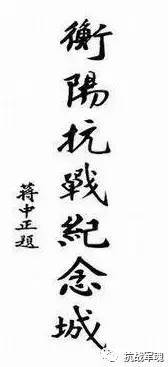 衡陽抗戰紀念城
蔣中正題
抗战军魂